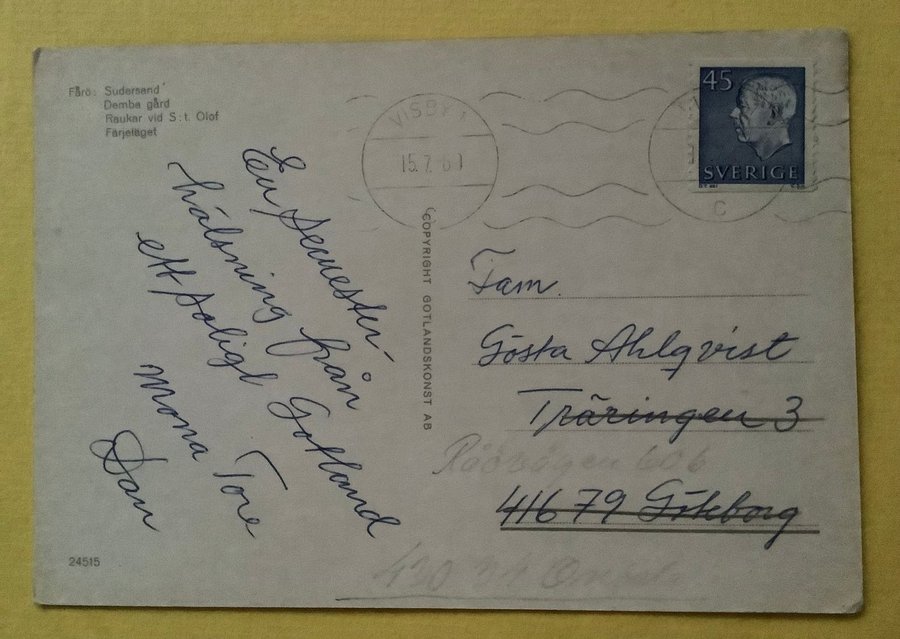 Fårö: Sudersand
Demba gård
Raukar vid S:t. Olof
Färjeläget
VISBY 1
15.7.6
C
45
SVERIGE
En semester-
hälsning från
ett soligt Gotland
Mona Tore
Dan
COPYRIGHT GOTLANDSKONST AB
Fam.
Gösta Ahlqvist
Träringen 3
606
416 79 Göteborg
430
24515